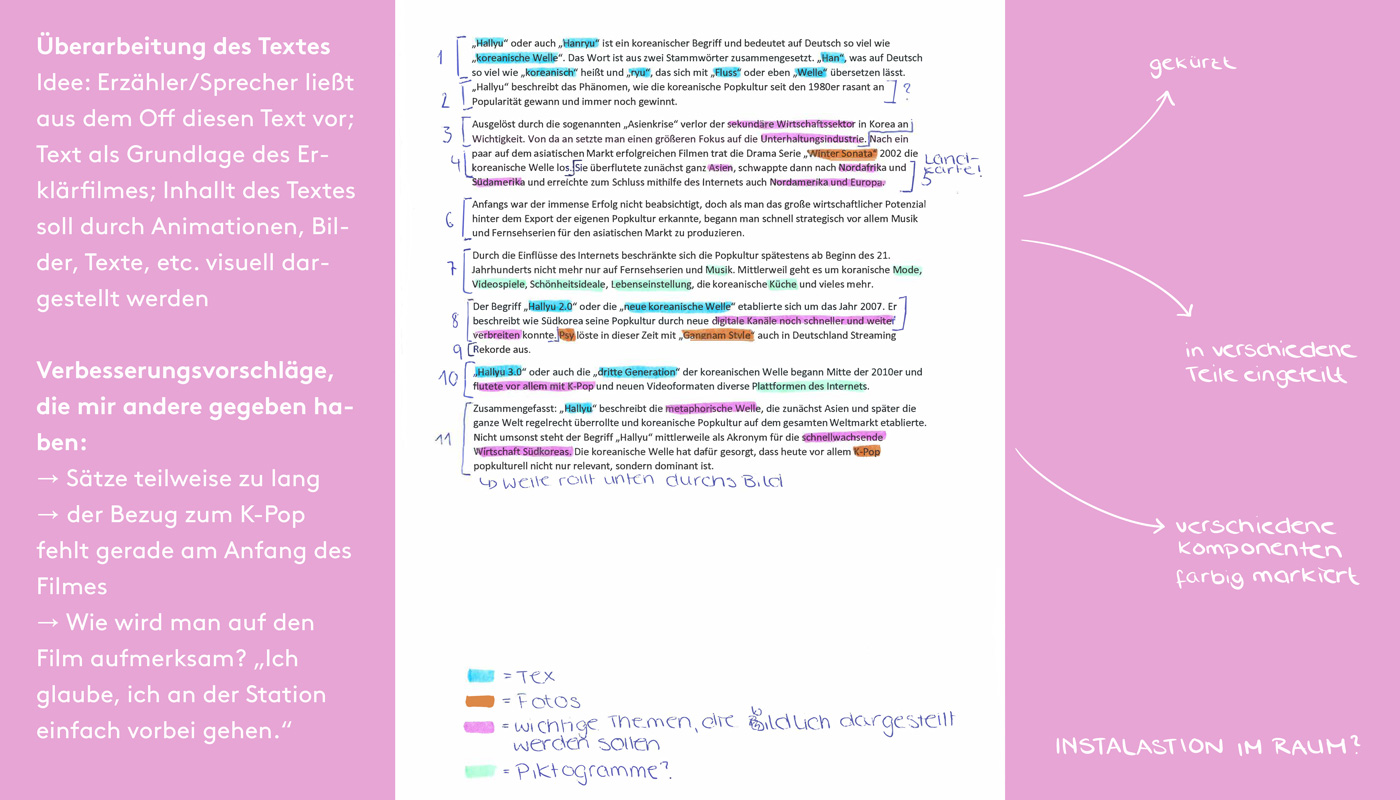 Überarbeitung des Textes
Idee: Erzähler/Sprecher ließt
aus dem Off diesen Text vor;
Text als Grundlage des Er-
klärfilmes; Inhallt des Textes
soll durch Animationen, Bil-
der, Texte, etc. visuell dar-
gestellt werden
Verbesserungsvorschläge,
die mir andere gegeben ha-
ben:
→ Sätze teilweise zu lang
→ der Bezug zum K-Pop
fehlt gerade am Anfang des
Filmes
→ Wie wird man auf den
Film aufmerksam? „Ich
glaube, ich an der Station
einfach vorbei gehen.“
1
„Hallyu“ oder auch „Hanryu“ ist ein koreanischer Begriff und bedeutet auf Deutsch so viel wie
„koreanische Welle“. Das Wort ist aus zwei Stammwörter zusammengesetzt. „Han“, was auf Deutsch
so viel wie „koreanisch“ heißt und „ryu“, das sich mit „Fluss“ oder eben „Welle“ übersetzen lässt.
2
„Hallyu“ beschreibt das Phänomen, wie die koreanische Popkultur seit den 1980er rasant an ?
Popularität gewann und immer noch gewinnt.
3
Ausgelöst durch die sogenannten „Asienkrise“ verlor der sekundäre Wirtschaftssektor in Korea an
Wichtigkeit. Von da an setzte man einen größeren Fokus auf die Unterhaltungsindustrie. Nach ein
4
paar auf dem asiatischen Markt erfolgreichen Filmen trat die Drama Serie „Winter Sonata“ 2002 die
koreanische Welle los. Sie überflutete zunächst ganz Asien, schwappte dann nach Nordafrika und
Südamerika und erreichte zum Schluss mithilfe des Internets auch Nordamerika und Europa.
Land-
karte!
5
6
Anfangs war der immense Erfolg nicht beabsichtigt, doch als man das große wirtschaftlicher Potenzial
hinter dem Export der eigenen Popkultur erkannte, begann man schnell strategisch vor allem Musik
und Fernsehserien für den asiatischen Markt zu produzieren.
7
Durch die Einflüsse des Internets beschränkte sich die Popkultur spätestens ab Beginn des 21.
Jahrhunderts nicht mehr nur auf Fernsehserien und Musik. Mittlerweil geht es um koranische Mode,
Videospiele, Schönheitsideale, Lebenseinstellung, die koreanische Küche und vieles mehr.
8
Der Begriff „Hallyu 2.0“ oder die „neue koreanische Welle“ etablierte sich um das Jahr 2007. Er
beschreibt wie Südkorea seine Popkultur durch neue digitale Kanäle noch schneller und weiter
verbreiten konnte. Psy löste in dieser Zeit mit „Gangnam Style“ auch in Deutschland Streaming
9
Rekorde aus.
10
„Hallyu 3.0“ oder auch die „dritte Generation“ der koreanischen Welle begann Mitte der 2010er und
flutete vor allem mit K-Pop und neuen Videoformaten diverse Plattformen des Internets.
11
Zusammengefasst: „Hallyu“ beschreibt die metaphorische Welle, die zunächst Asien und später die
ganze Welt regelrecht überrollte und koreanische Popkultur auf dem gesamten Weltmarkt etablierte.
Nicht umsonst steht der Begriff „Hallyu“ mittlerweile als Akronym für die schnellwachsende
Wirtschaft Südkoreas. Die koreanische Welle hat dafür gesorgt, dass heute vor allem K-Pop
popkulturell nicht nur relevant, sondern dominant ist.
↳ Welle rollt unten durchs Bild
= Tex
= Fotos
= wichtige Themen, die Bildlich dargestellt
werden sollen
= Piktogramme?
gekürzt
in verschiedene
Teile eingeteilt
verschiedene
Komponenten
farbig markiert
INSTALASTION IM RAUM?